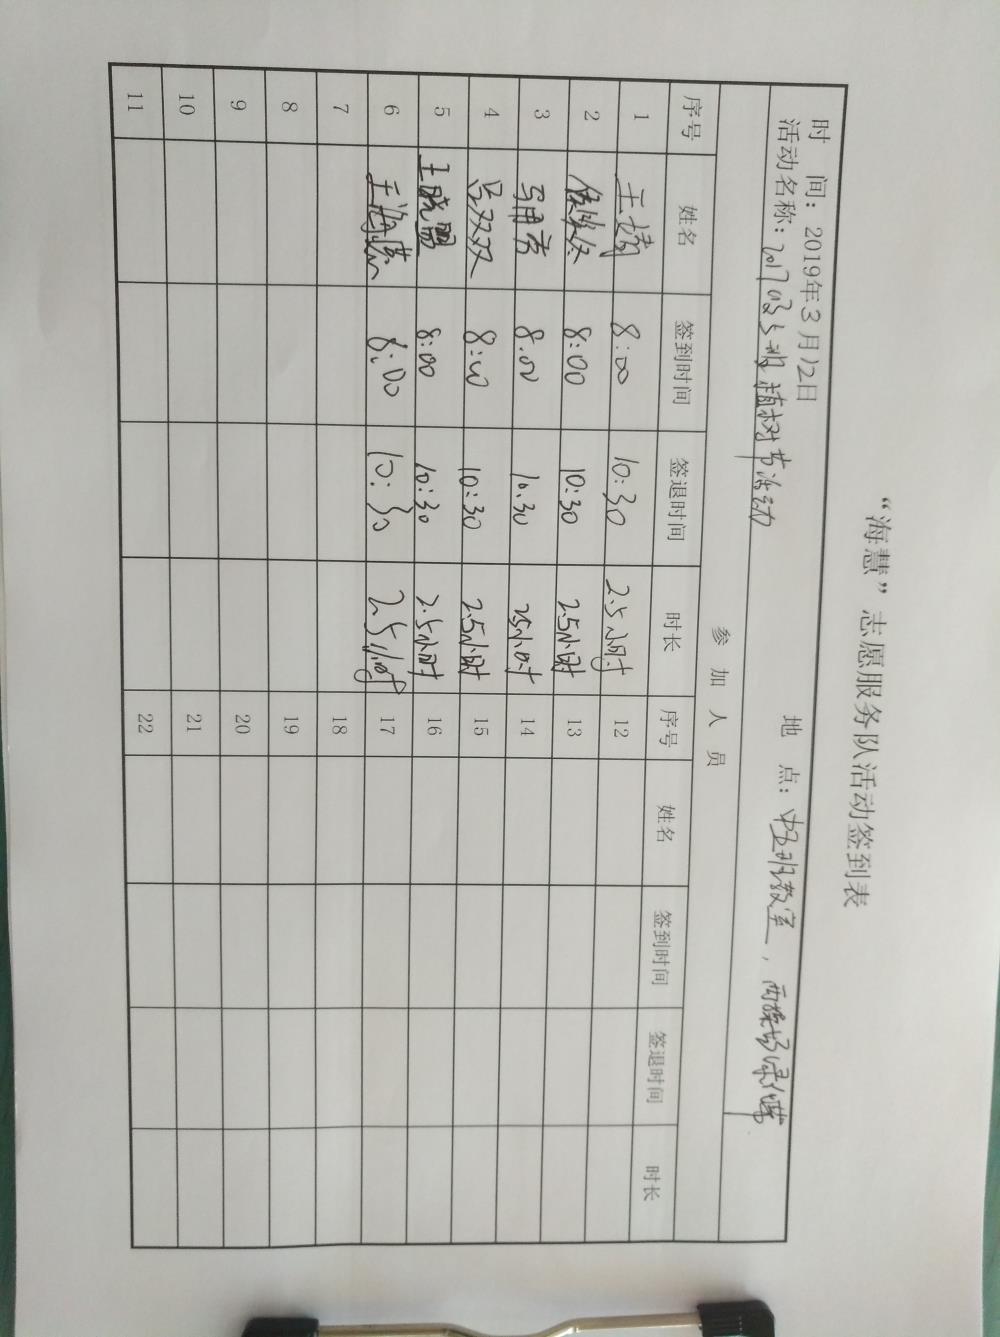 “海慧”志愿服务队活动签到表
时 间：2019年3月12日 地 点：中五班教室，西操场绿化带
活动名称：2017级5班植树节活动
参 加 人 员
序号 姓名 签到时间 签退时间 时长 序号 姓名 签到时间 签退时间 时长
1 王婧 8:00 10:30 2.5小时 12
2 8:00 10:30 2.5小时 13
3 8.00 10.30 2.5小时 14
4 吕双双 8:00 10:30 2.5小时 15
5 王晓盟 8:00 10:30 2.5小时 16
6 8:00 10:30 2.5小时 17
7 18
8 19
9 20
10 21
11 22